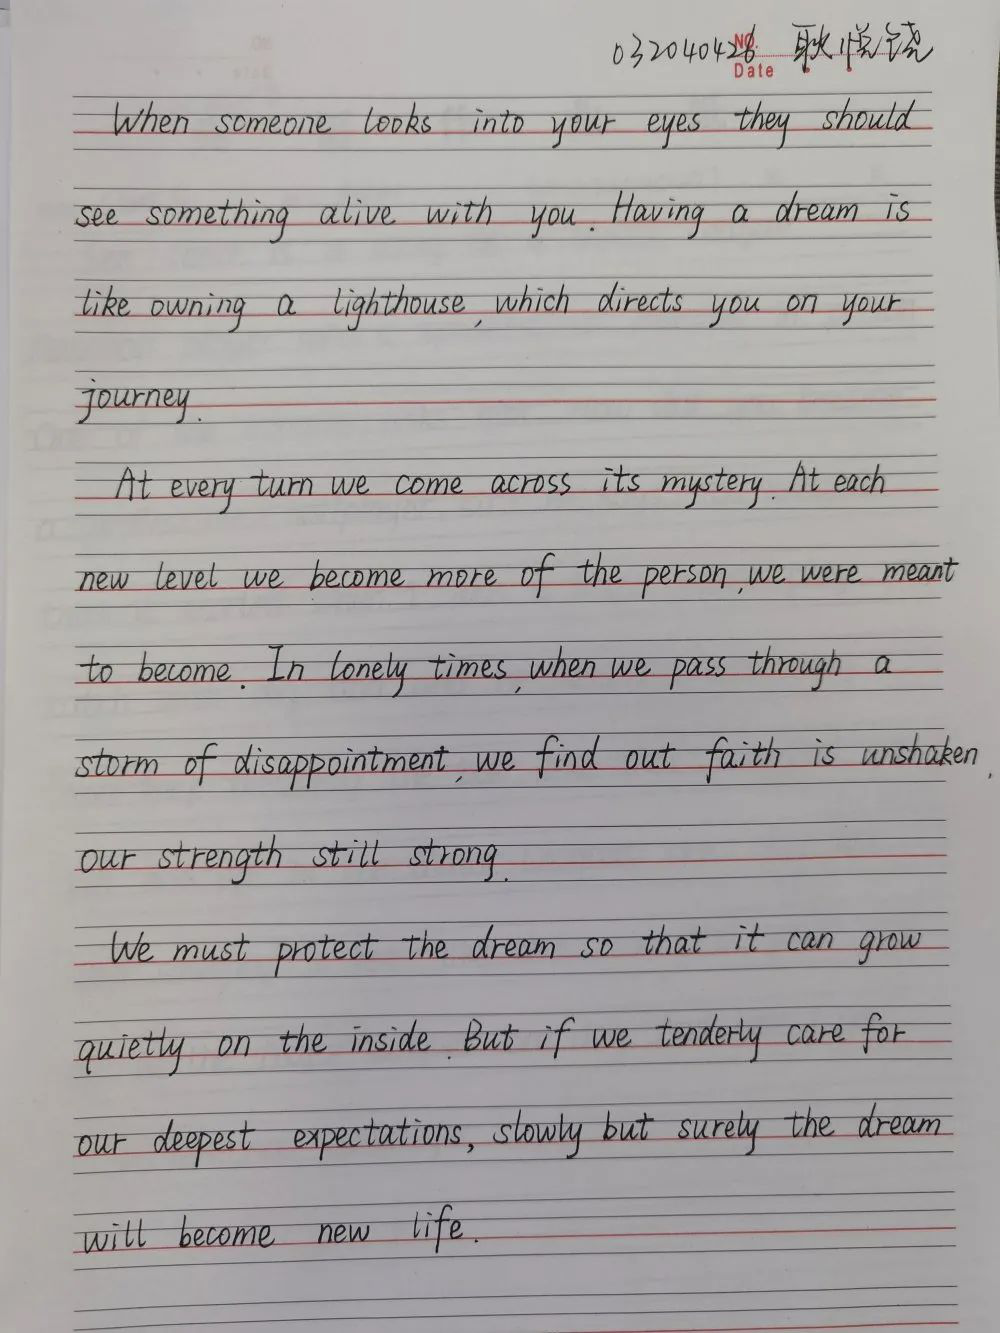 032040426 耿悦铙
NO.
Date
When someone looks into your eyes they should
see something alive with you. Having a dream is
like owning a lighthouse, which directs you on your
journey.
At every turn we come across its mystery. At each
new level we become more of the person, we were meant
to become. In lonely times, when we pass through a
storm of disappointment, we find out faith is unshaken,
our strength still strong.
We must protect the dream so that it can grow
quietly on the inside. But if we tenderly care for
our deepest expectations, slowly but surely the dream
will become new life.